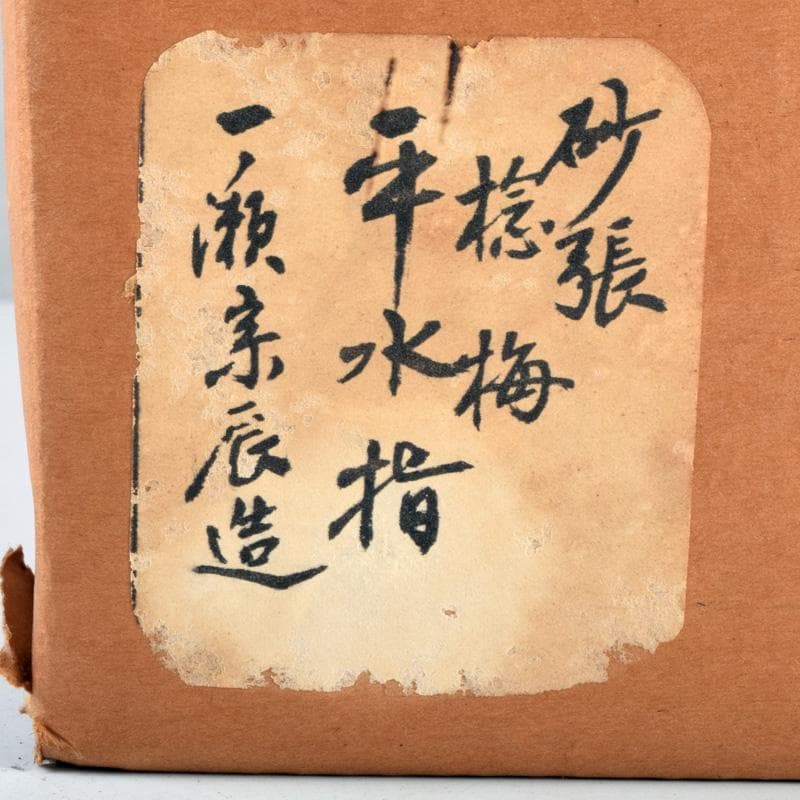 砂張
捻梅
平水指
一ノ瀬宗辰造